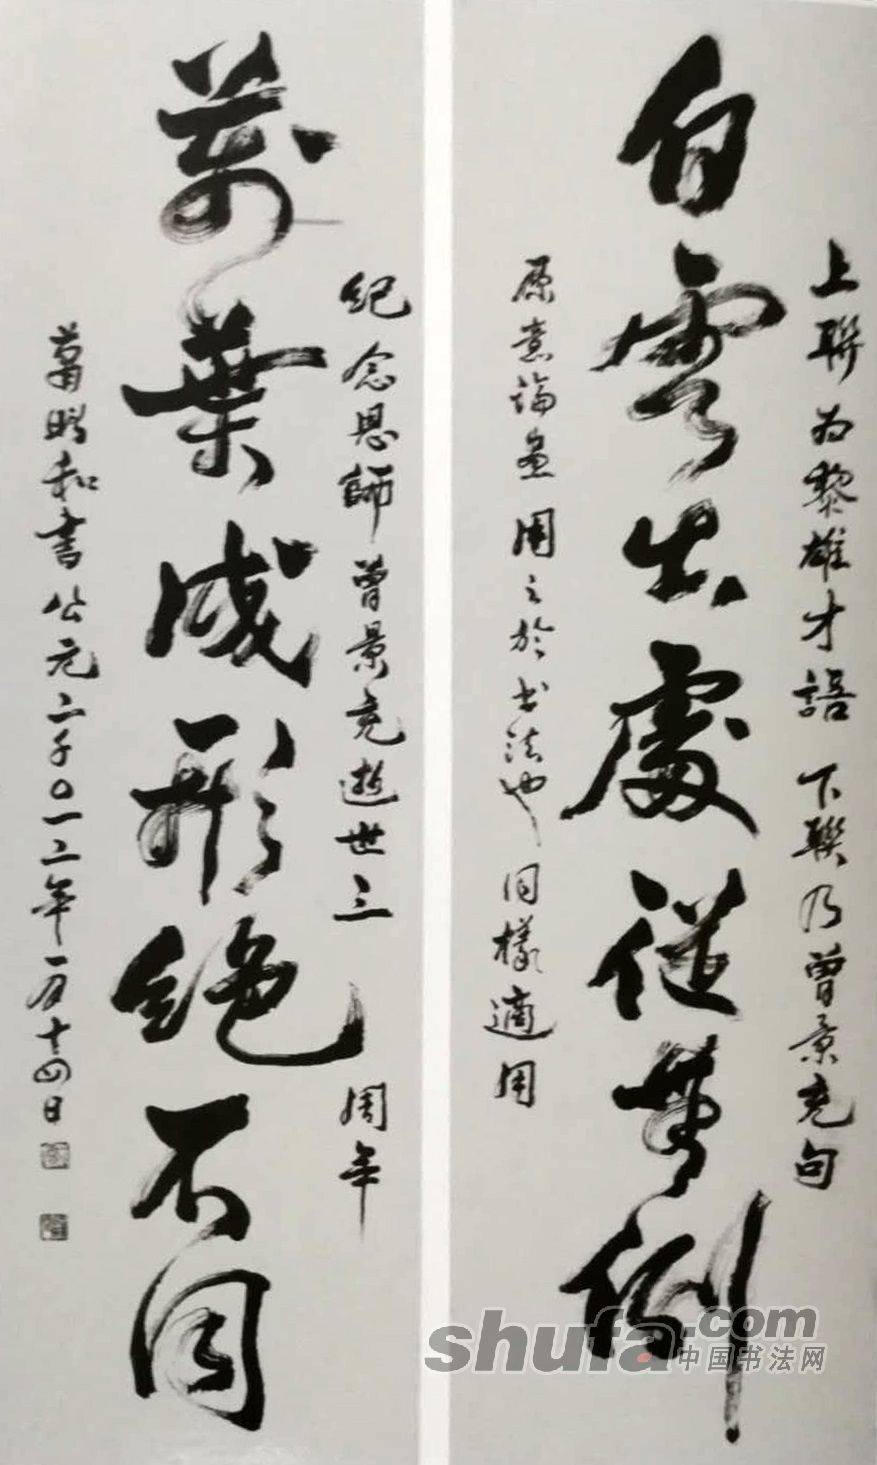 白雲出處從無例
上聯为黎雄才語 下聯乃曾景充句
原意論畫 用之於书法也 同樣適用
萬葉成形絕不同
紀念恩師曾景充逝世三
周年
蕭
和書公元二千〇一二年一月十四日
shufa.com
中国书法网